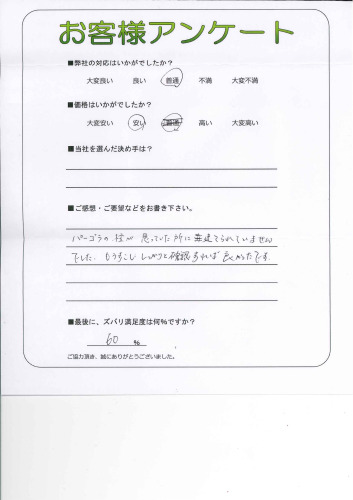 お客様アンケート
■弊社の対応はいかがでしたか？
大変良い 良い 普通 不満 大変不満
■価格はいかがでしたか？
大変安い 安い 普通 高い 大変高い
■当社を選んだ決め手は？
■ご感想・ご要望などをお書き下さい。
パーゴラの柱が 思っていた所に 建てられていません
でした。もうすこし しっかりと確認すれば良かったです。
■最後に、ズバリ満足度は何％ですか？
60 %
ご協力頂き、誠にありがとうございました。